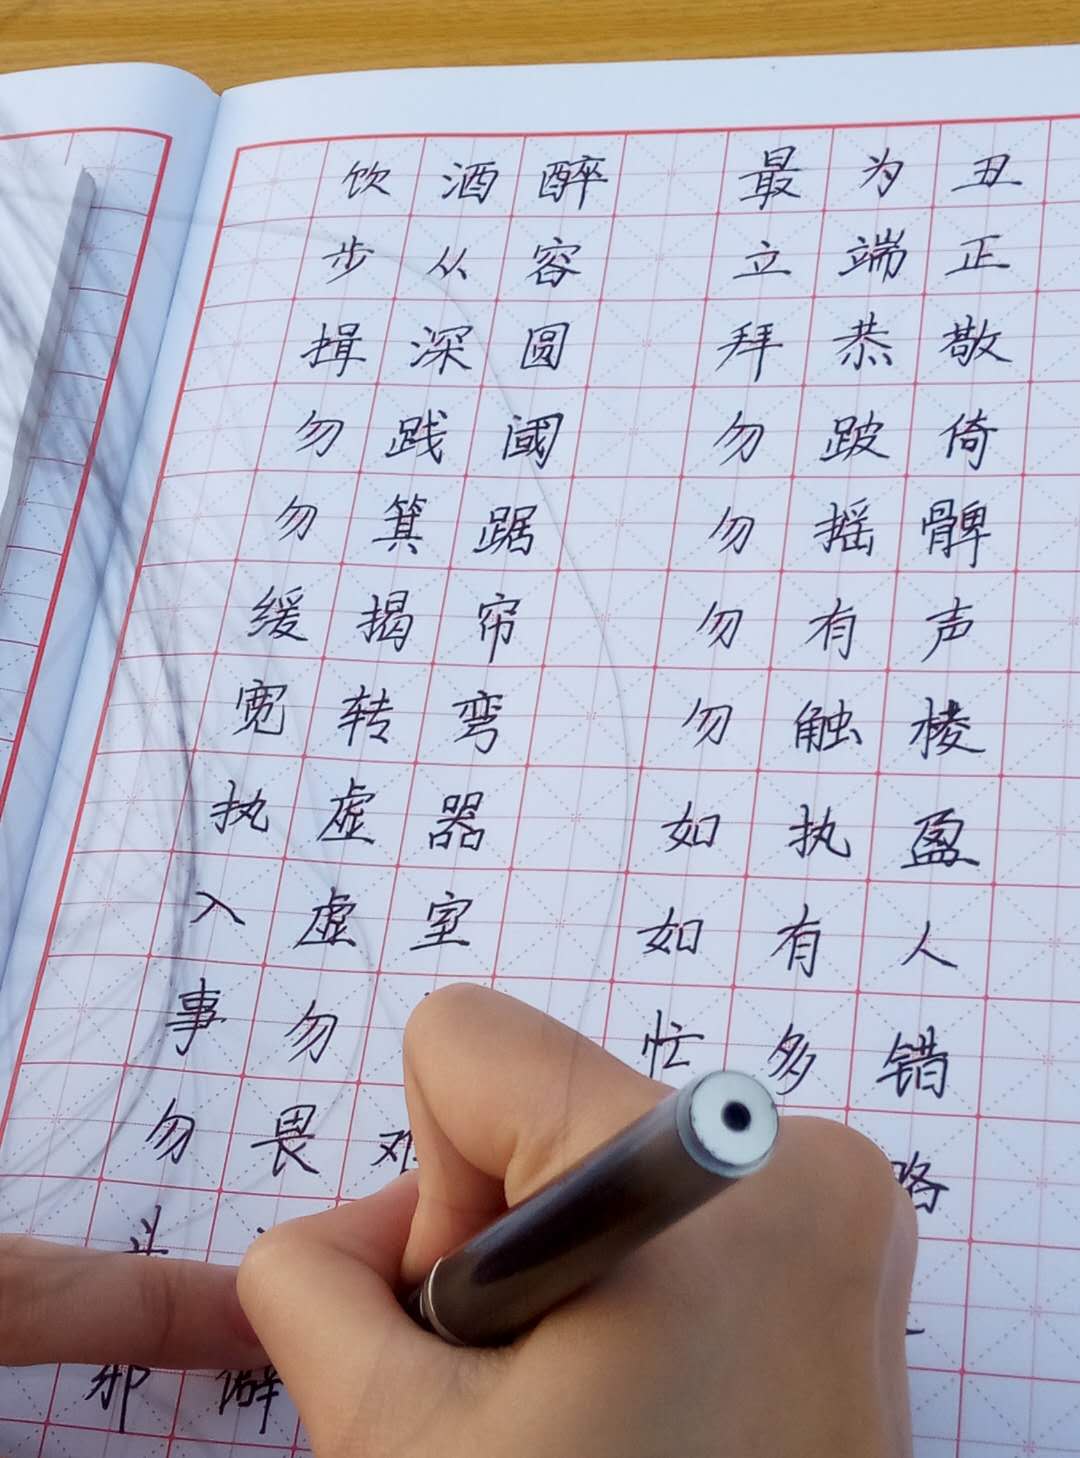 饮酒醉 最为丑
步从容 立端正
揖深圆 拜恭敬
勿践阈 勿跛倚
勿箕踞 勿摇髀
缓揭帘 勿有声
宽转弯 勿触棱
执虚器 如执盈
入虚室 如有人
事勿 忙多错
勿畏难 略
邪僻